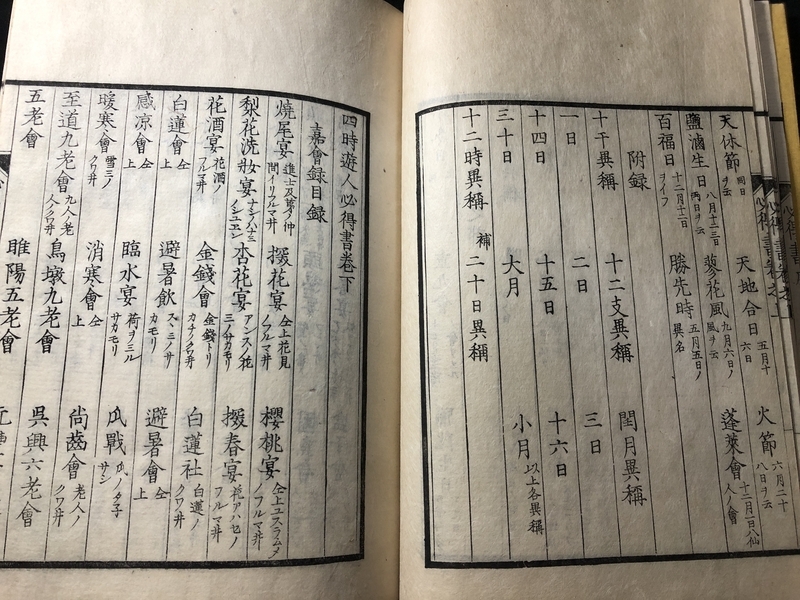 天休節 同日ヲ云 天地合日 五月十六日 火節 六月二十八日ヲ云
鹽滷生日 八月十二三日両日ヲ云 蓼花風 九月六日ノ風ヲ云 蓬萊會 十二月一日八仙人人會
百福日 十二月十二日ヲイフ 勝先時 五月五日ノ異名
附録
十干異稱 十二支異稱 閏月異稱
一日 二日 三日
十四日 十五日 十六日
三十日 大月 小月 以上各異稱
十二時異稱 補 二十日異稱
四時遊人必得書巻下
嘉會録目録
燒尾宴 進士及第ノ仲間イリフルマヰ 探花宴 仝上花見ノフルマヰ 櫻桃宴 仝上ユスラムメノフルマヰ
梨花洗妝宴 ナシノハナミノシユエン 杏花宴 アンズノ花ミノサカモリ 探春宴 花アハセノフルマヰ
花酒宴 花酒ノフルマヰ 金錢會 金錢トリカチノ名井 白蓮社 白蓮ノクワヰ
白蓮會 仝上 避暑飲 スヾミノサカモリ 避暑會 仝上
感凉會 仝上 臨水宴 荷ヲミルサカモリ 瓜戰 瓜ノタ子サシ
暖寒會 雪ミノクワヰ 消寒會 仝上 尚齒會 老人ノクワヰ
至道九老會 九人ノ老人クワヰ 鳥墩九老會 呉興六老會
五老會 睢陽五老會